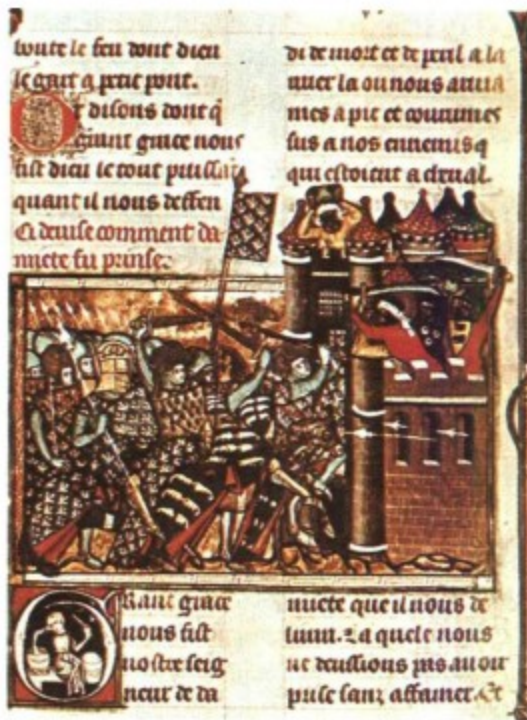 toute le feu dont dieu
le gart a petit pont.
Or disons dont q̄
grant grace nous
fist dieu le tout puissant
quant il nous deffen
Ci deuise comment da
miete fu prinse.
di de mort et de peril a la
riuer la ou nous arriua
mes a pie et courumes
sus a nos ennemis q
qui estoient a cheual.
Grant grace
nous fist
nostre seig
neur de da
miete que il nous de
liura. La quele nous
ne deussions pas auoir
prise sanz affamer. Et